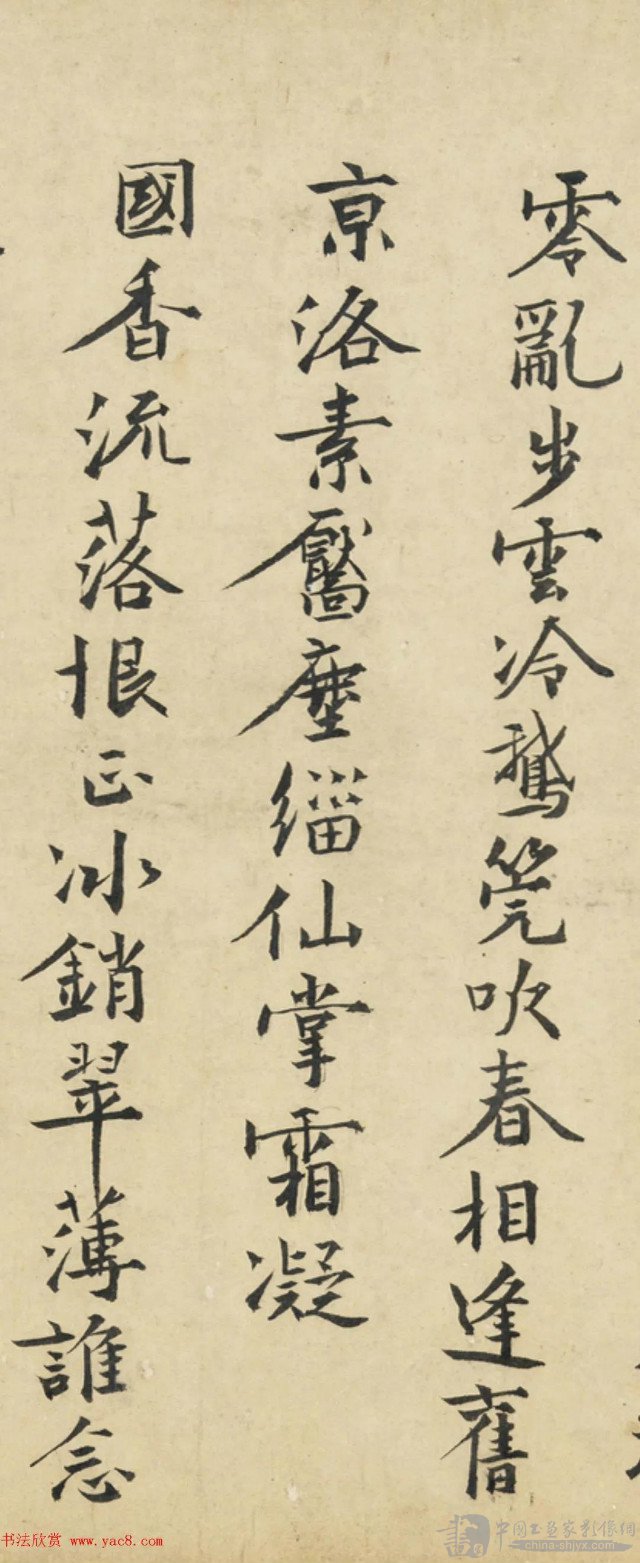 零亂步雲冷鵞筦吹春相逢舊
京洛素靨塵緇仙掌霜凝
國香流落恨正冰銷翠薄誰念
书法欣赏 www.yac8.com
中国书画家影像網
china-shjyx.com